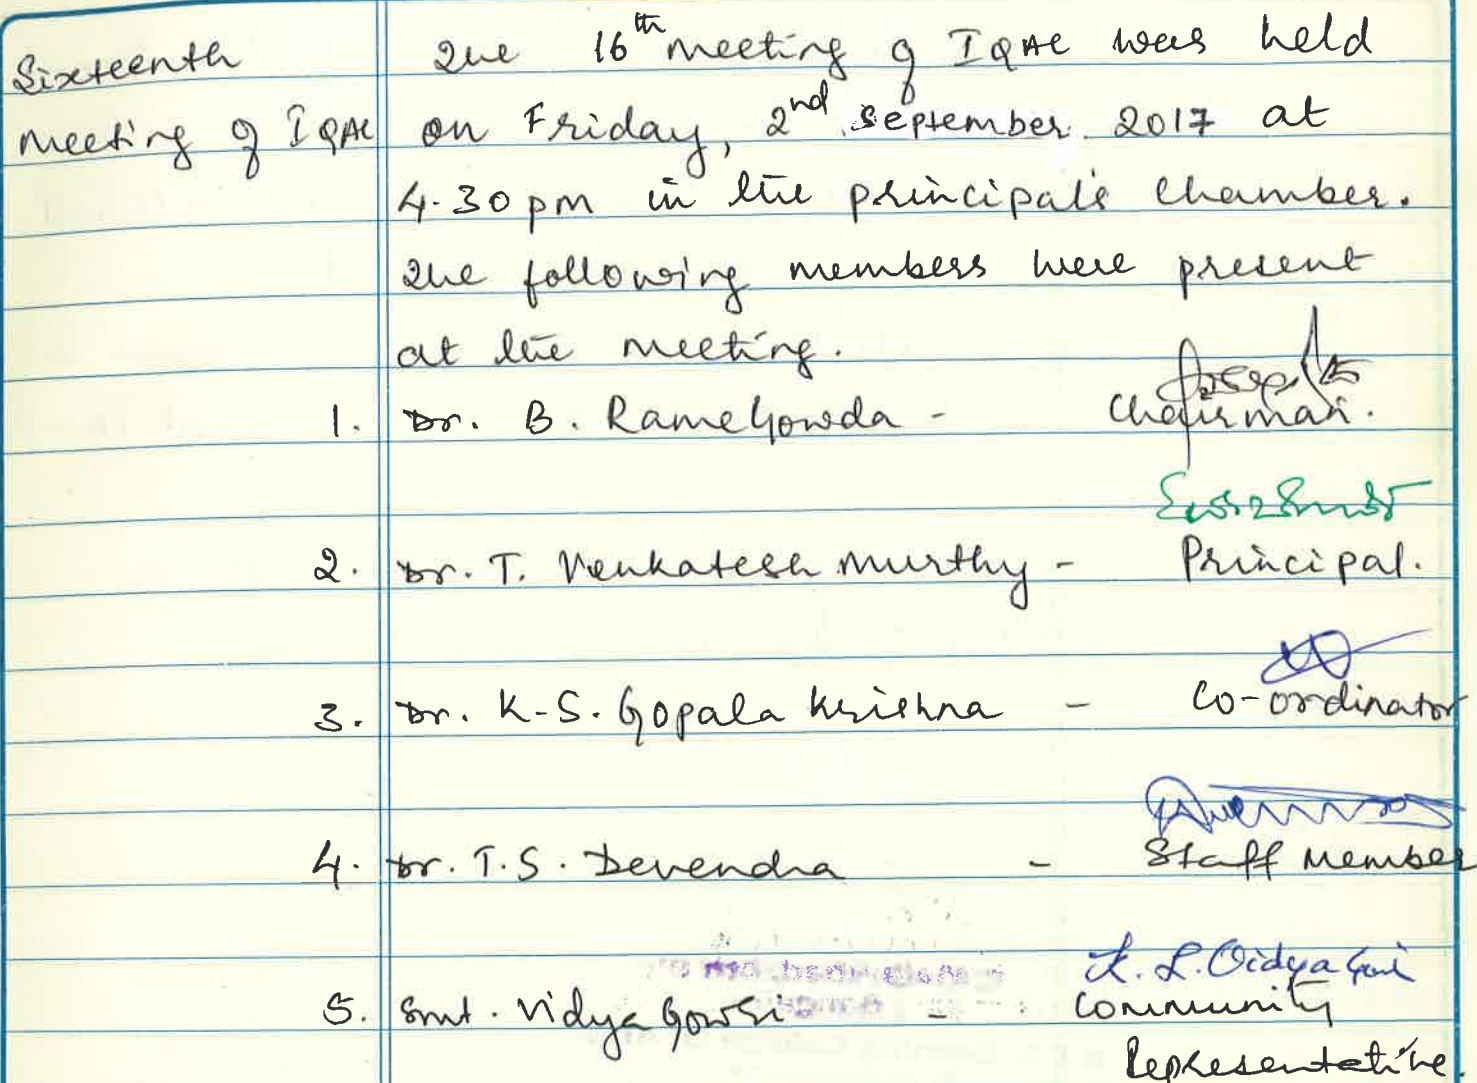 Sixteenth
meeting of IQAC
The 16th meeting of IQAC was held
on Friday, 2nd September 2017 at
4.30pm in the principal's chamber.
The following members were present
at the meeting.
1. Dr. B. Ramegowda - Chairman.
2. Dr. T. Venkatesh Murthy - Principal.
3. Dr. K.S. Gopala Krishna - Co-ordinator
4. Dr. T.S. Devendra - Staff Member
K. L. Vidya Gowri
5. Smt. Vidya Gowri - Community
Representative.